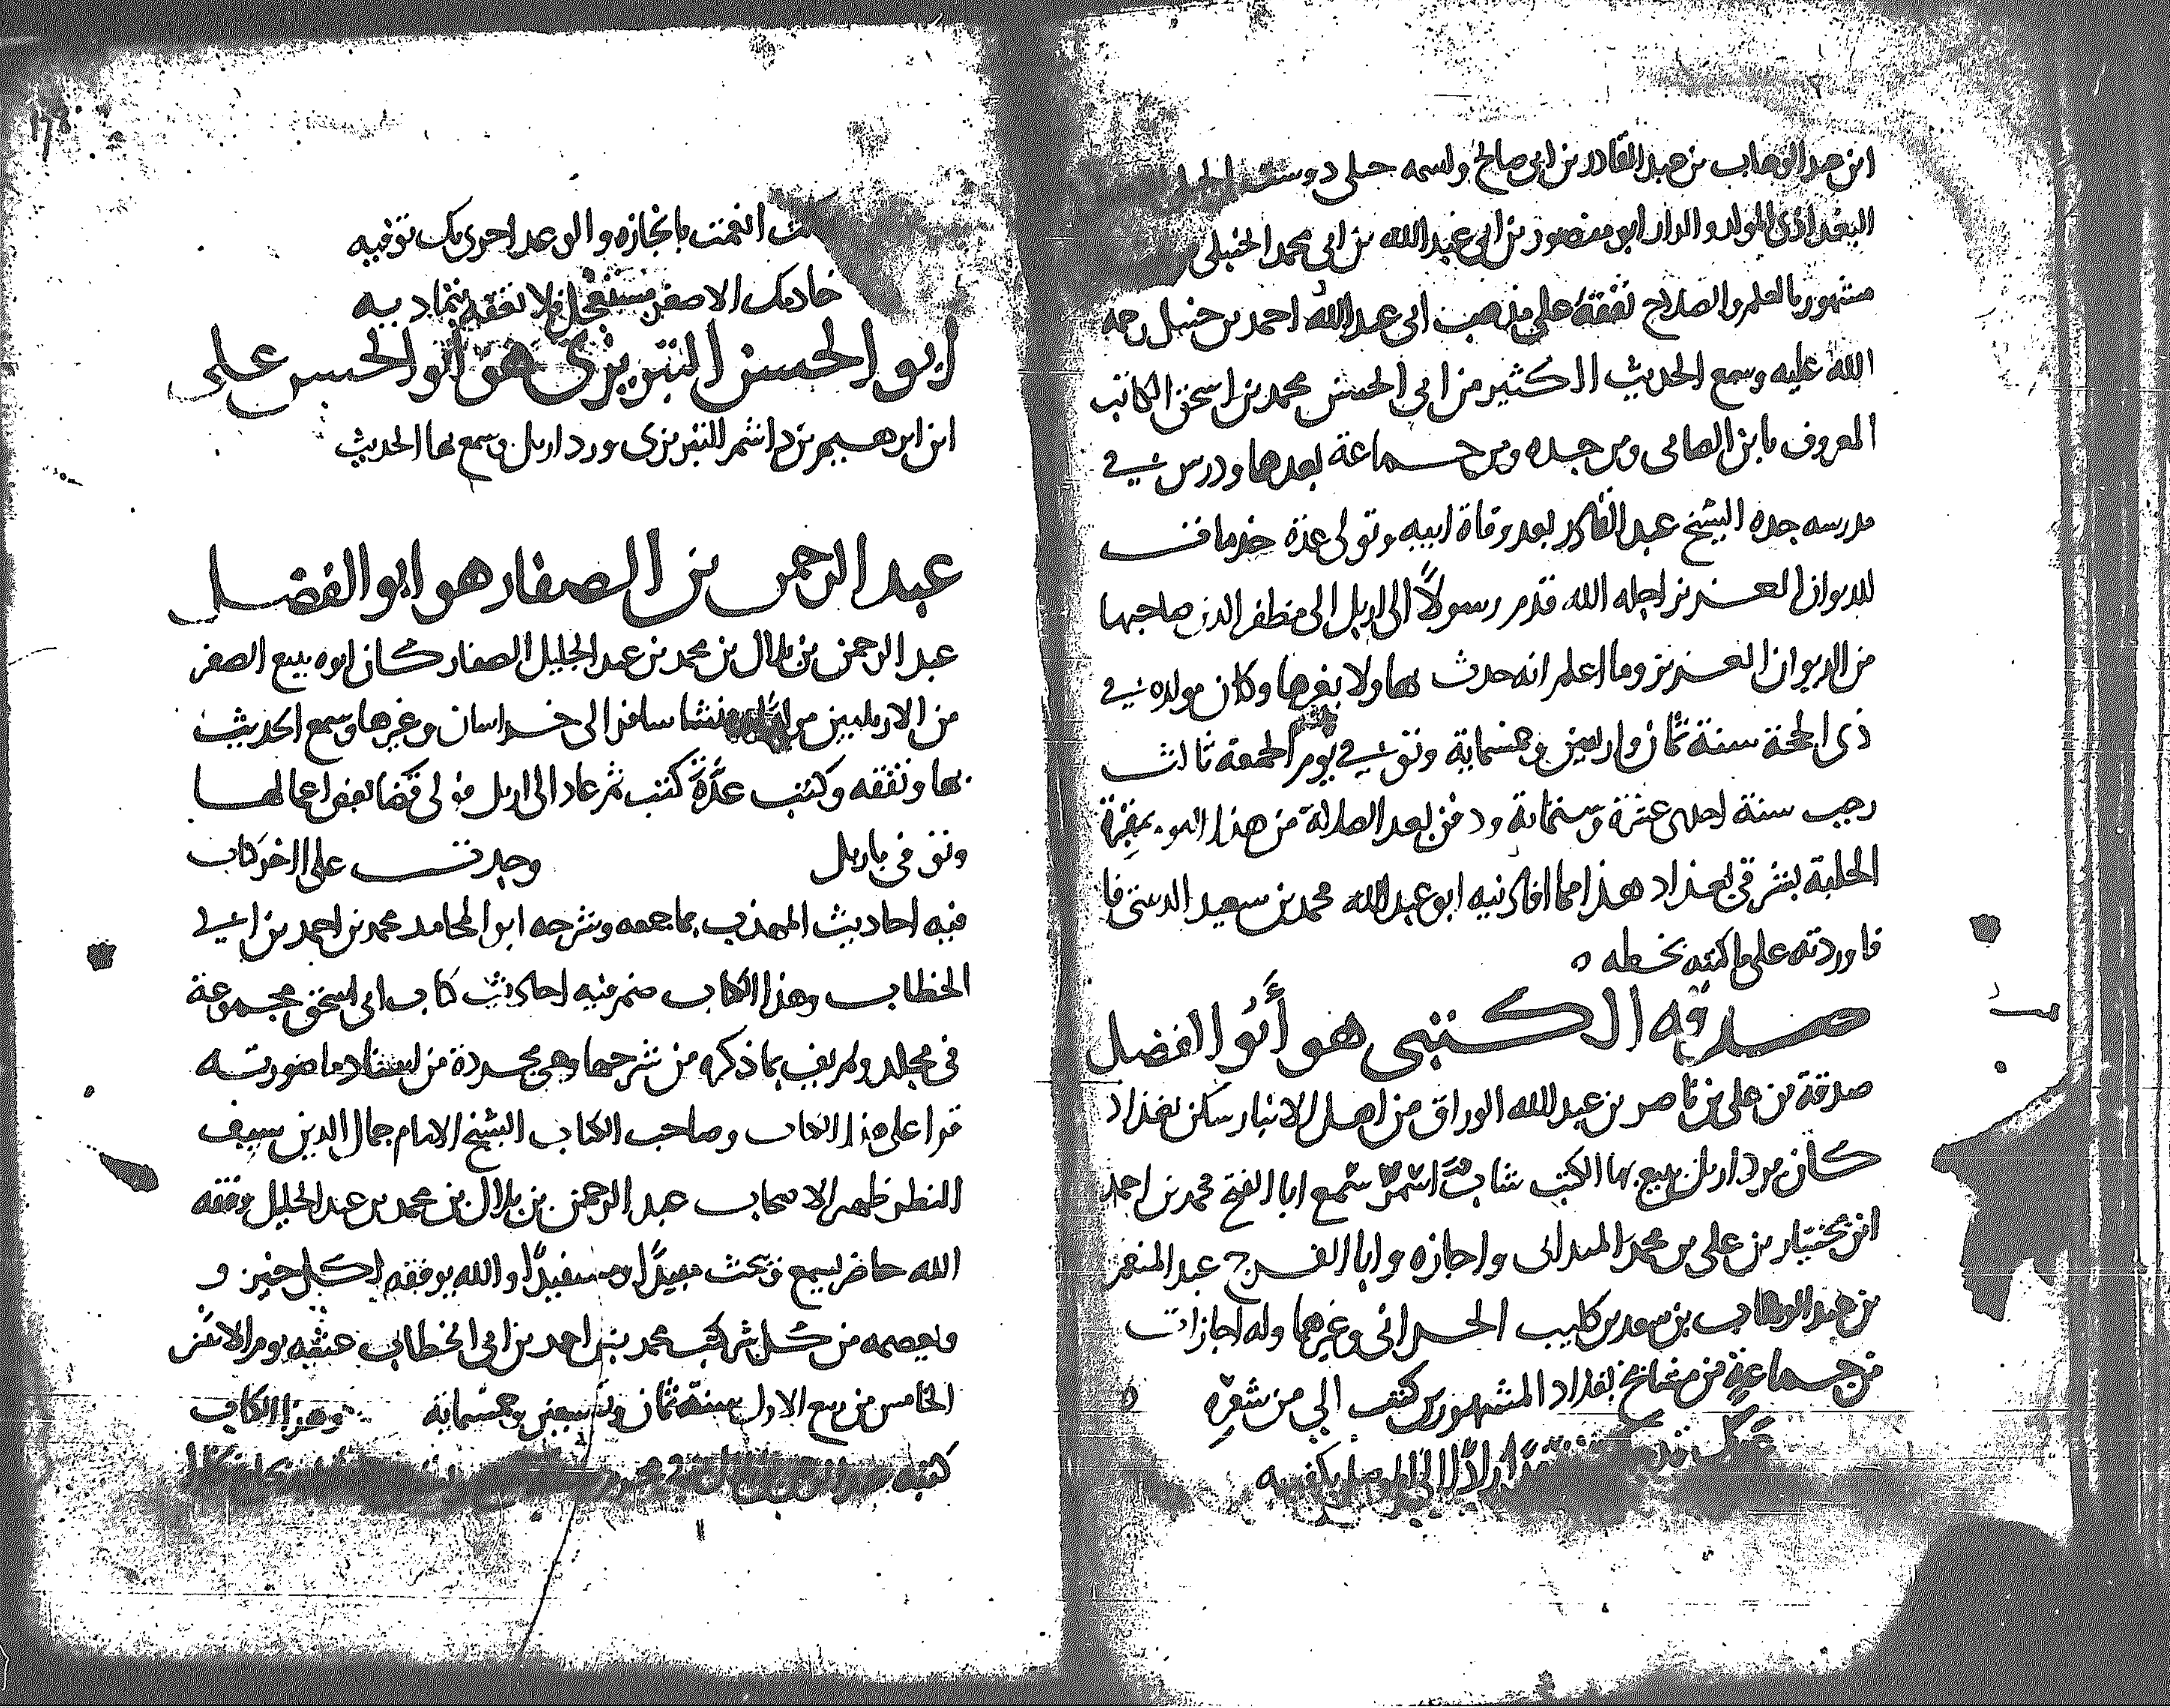 ابن عبد الوهاب بن عبد القادر بن ابي صالح واسمه جيلي دوست
البغداذي المولد والدار ابو منصور بن ابي عبد الله بن ابي محمد الحنبلي
مشهور بالعلم والصلاح تفقه على مذهب ابي عبد الله احمد بن حنبل رحمه
الله عليه وسمع الحديث الكثير من ابي الحسن محمد بن اسحق الكاتب
المعروف بابن الصابي ومن جده ومن جماعة بعدها ودرس في
مدرسه جده الشيخ عبد القادر بعد وفاة ابيه وتولى عدة خدمات
للديوان العزيز اجله الله قدم رسولاً الى اربل الى مظفر الدين صاحبها
من الديوان العزيز وما اعلم انه حدث بها ولا بغيرها وكان مولده في
ذي الحجة سنة ثمان واربعين وخمسماية وتوفي في يوم الجمعة ثالث
رجب سنة احدى عشرة وستماية ودفن بعد الصلاة من هذا اليوم بمقبرة
الحلبة بشرقي بغداد هذا مما افادنيه ابو عبد الله محمد بن سعيد الدبيثي
فاوردته على ما كتبه بخطه ٥
صدقه الكتبي هو أبو الفضل
صدقة بن علي بن ناصر بن عبد الله الوراق من اهل الانبار سكن بغداد
كان يرد اربل يبيع بها الكتب شاب أسمر سمع ابا الفتح محمد بن احمد
ابن بختيار بن علي بن محمد المندائي واجازه وابا الفرج عبد المنعم
بن عبد الوهاب بن سعد بن كليب الحراني وغيرهما وله اجازات
من جماعة من مشايخ بغداد المشهورين كتب الي من شعره ٥
الى الموصل يكفيه
انعمت بانجازه والوعد احرى بك توفيه
خادمك الاصغر مستعجل فلا تفقه بتماديه
ابو الحسن التبريزي هو ابو الحسن علي
ابن ابرهيم بن دانشمر التبريزي ورد اربل وسمع بها الحديث
عبد الرحمن بن الصفار هو ابو الفضل
عبد الرحمن بن بلال بن محمد بن عبد الجليل الصفار كان ابوه يبيع الصفر
من الاربليين منشا سافر الى خراسان وغيرها وسمع الحديث
بها وتفقه وكتب عدَّة كتب ثم عاد الى اربل فولي قضا بعض اعمالها
وتوفي باربل وجدت على اخر كتاب
فيه احاديث المهذب مما جمعه وشرحه ابو المحامد محمد بن احمد بن ابي
الخطاب وهذا الكتاب ضم فيه احاديث كتاب ابي اسحق مجموعة
في مجلد ولم يف بما ذكره من شرحها وهي مجردة من اسنادها صورته
قرا علي هذا الكتاب وصاحب الكتاب الشيخ الامام جمال الدين سيف
النظر ظهير الاصحاب عبد الرحمن بن بلال بن محمد بن عبد الجليل وفقه
الله حاضر يسمع وبحث مفيدًا ومستفيدًا والله يوفقه لكل خير و
ويعصمه من كل شر كتب محمد بن احمد بن ابي الخطاب عشيه يوم الاثنين
الخامس من ربيع الاول سنة ثمان وتسعين وخمسماية وهذا الكتاب
كتبه